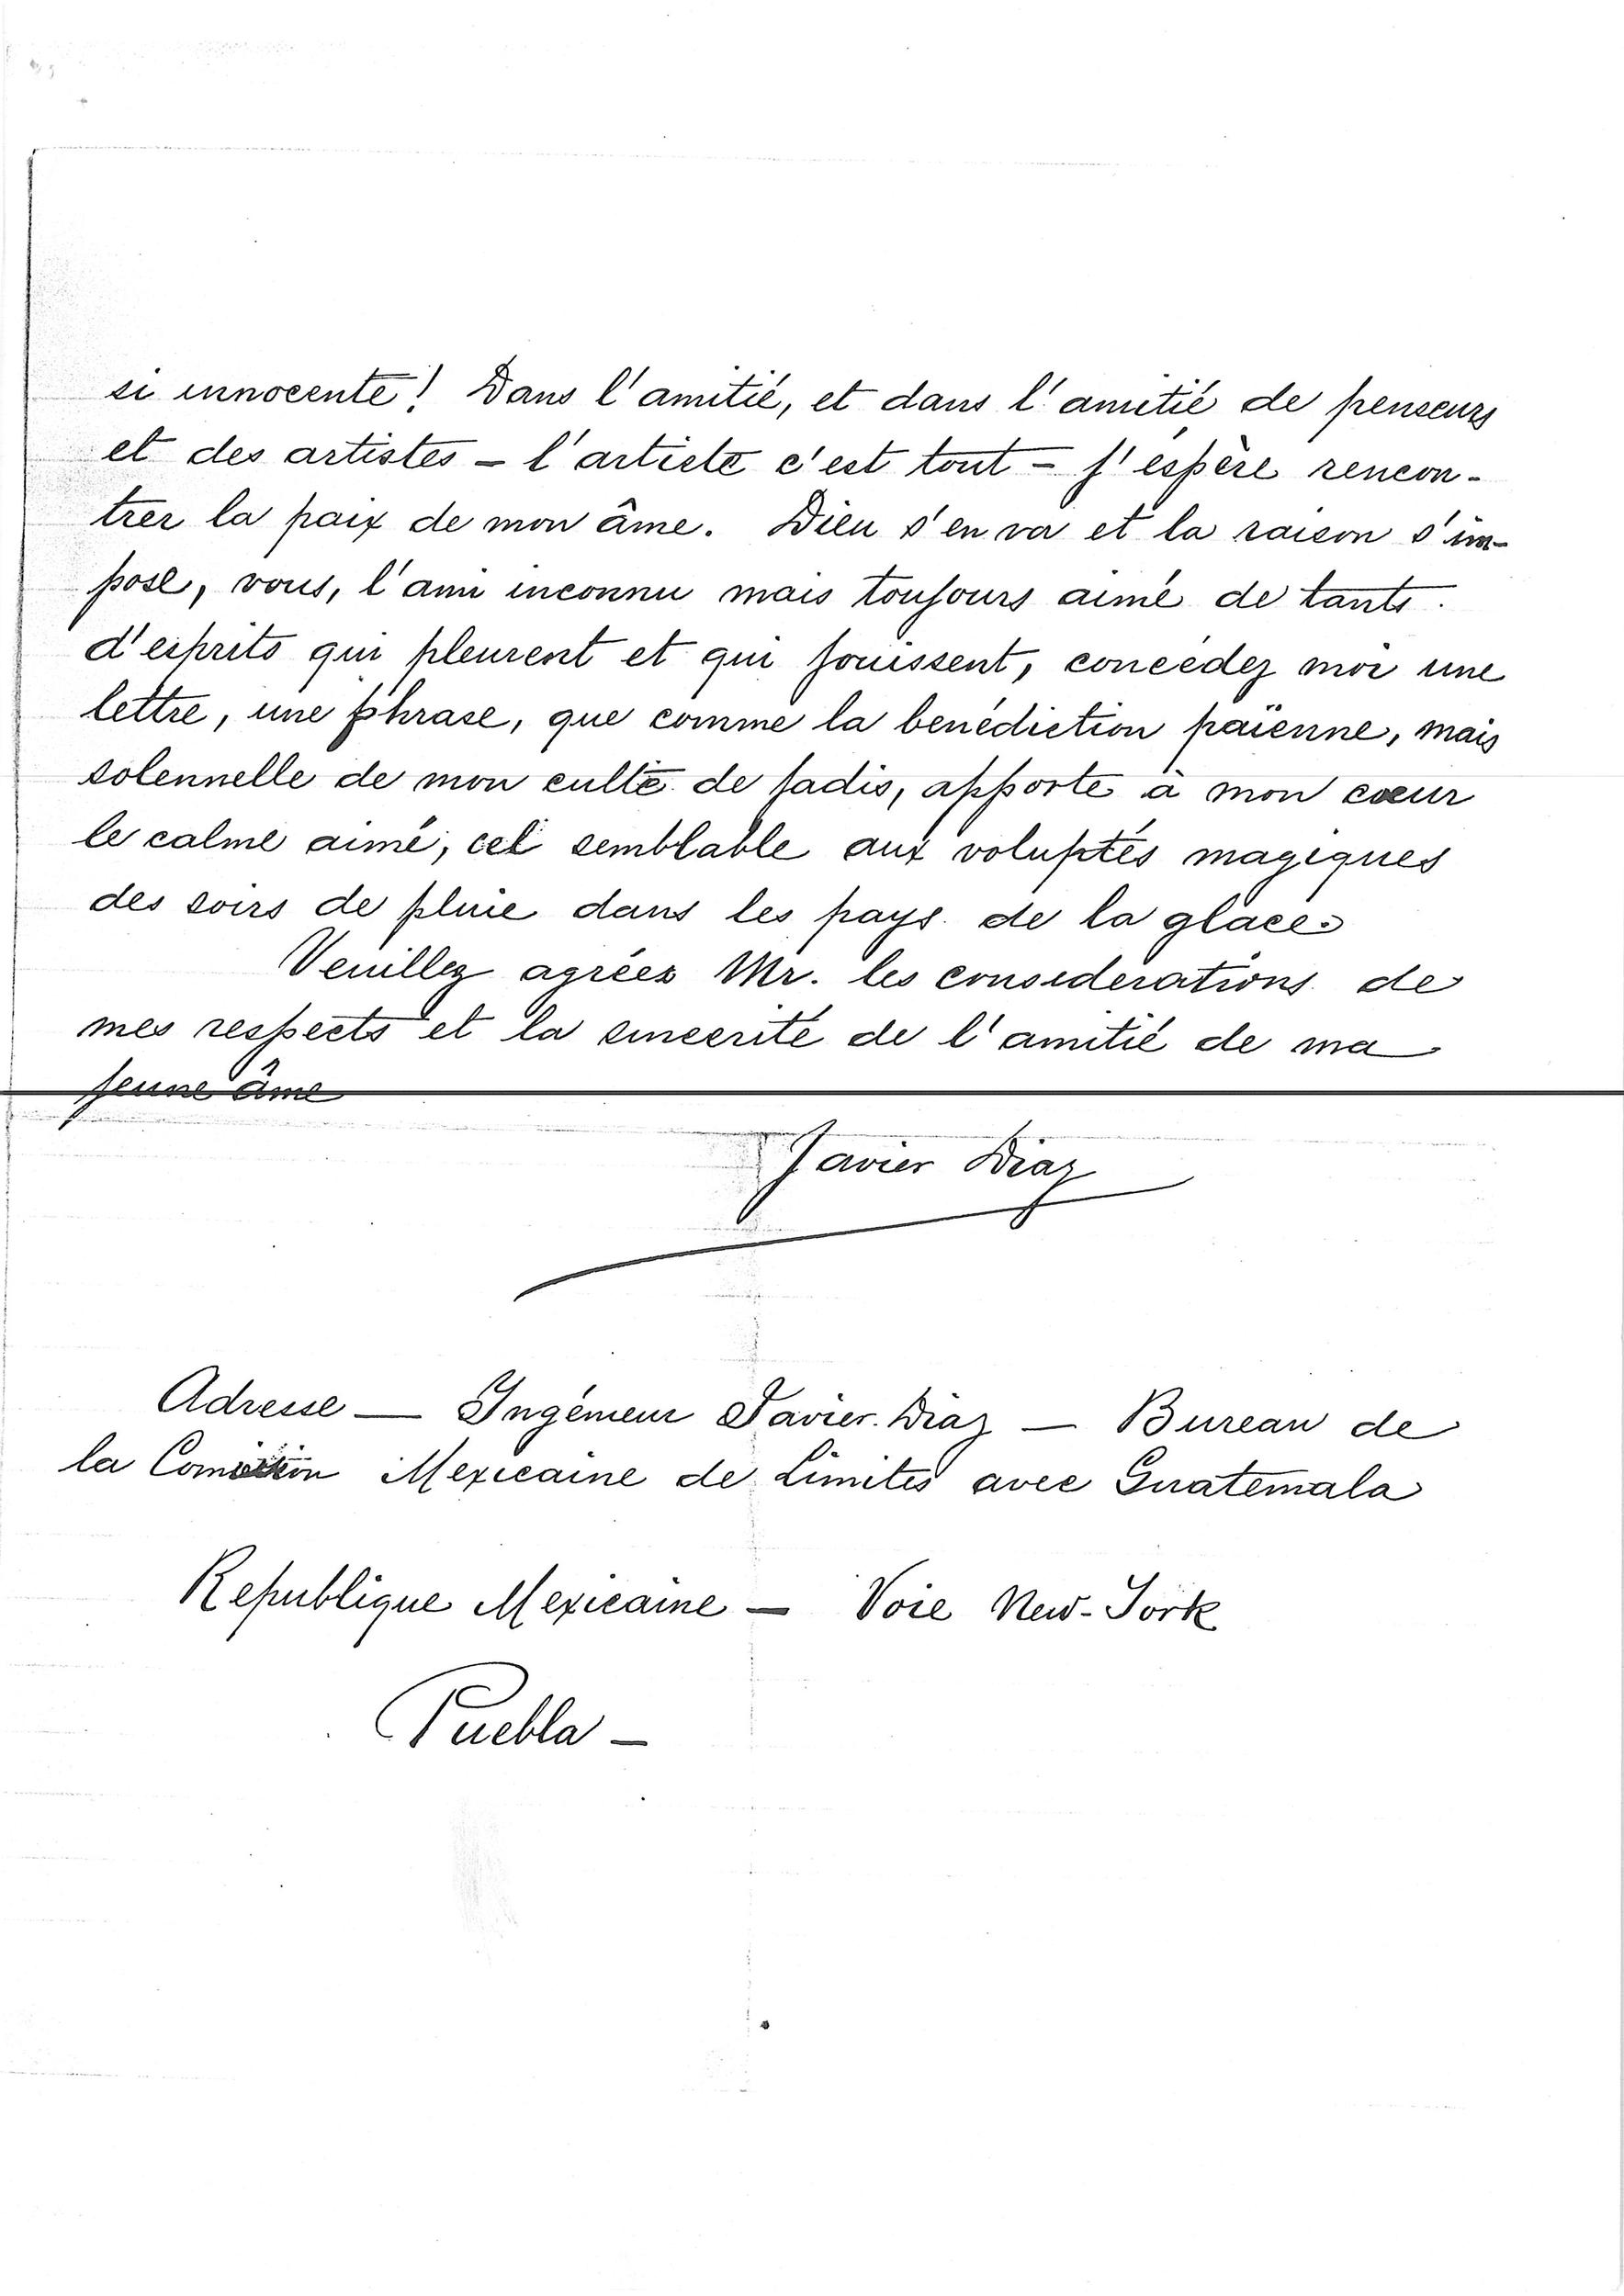 si innocente! Dans l'amitié, et dans l'amitié de penseurs
et des artistes – l'artiste c'est tout – j'espère rencon-
trer la paix de mon âme. Dieu s'en va et la raison s'im-
pose, vous, l'ami inconnu mais toujours aimé de tants
d'esprits qui pleurent et qui jouissent, concédez moi une
lettre, une phrase, que comme la benédiction païenne, mais
solennelle de mon culte de jadis, apporte à mon cœur
le calme aimé, cel semblable aux voluptés magiques
des soirs de pluie dans les pays de la glace.
Veuillez agréer Mr. les considerations de
mes respects et la sincerité de l'amitié de ma
jeune âme
Javier Diaz
Adresse — Ingénieur Javier Diaz — Bureau de
la Comision Mexicaine de Limites avec Guatemala
Republique Mexicaine — Voie New-York
Puebla —